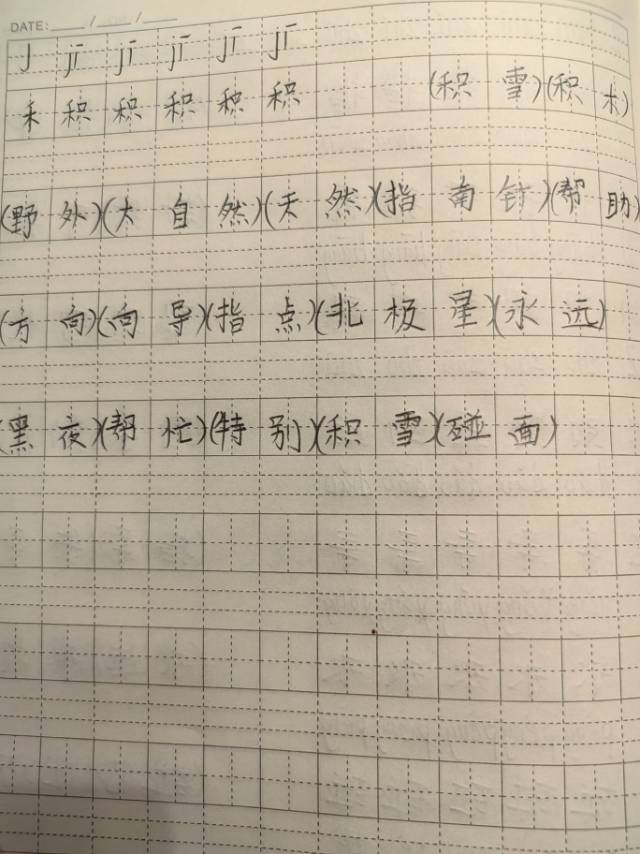 DATE: / /
J jī jī jī jī jī
禾 积 积 积 积 积 (积 雪)(积 木)
(野 外)(大 自 然)(天 然)(指 南 针)(帮 助)
(方 向)(向 导)(指 点)(北 极 星)(永 远)
(黑 夜)(帮 忙)(特 别)(积 雪)(碰 面)